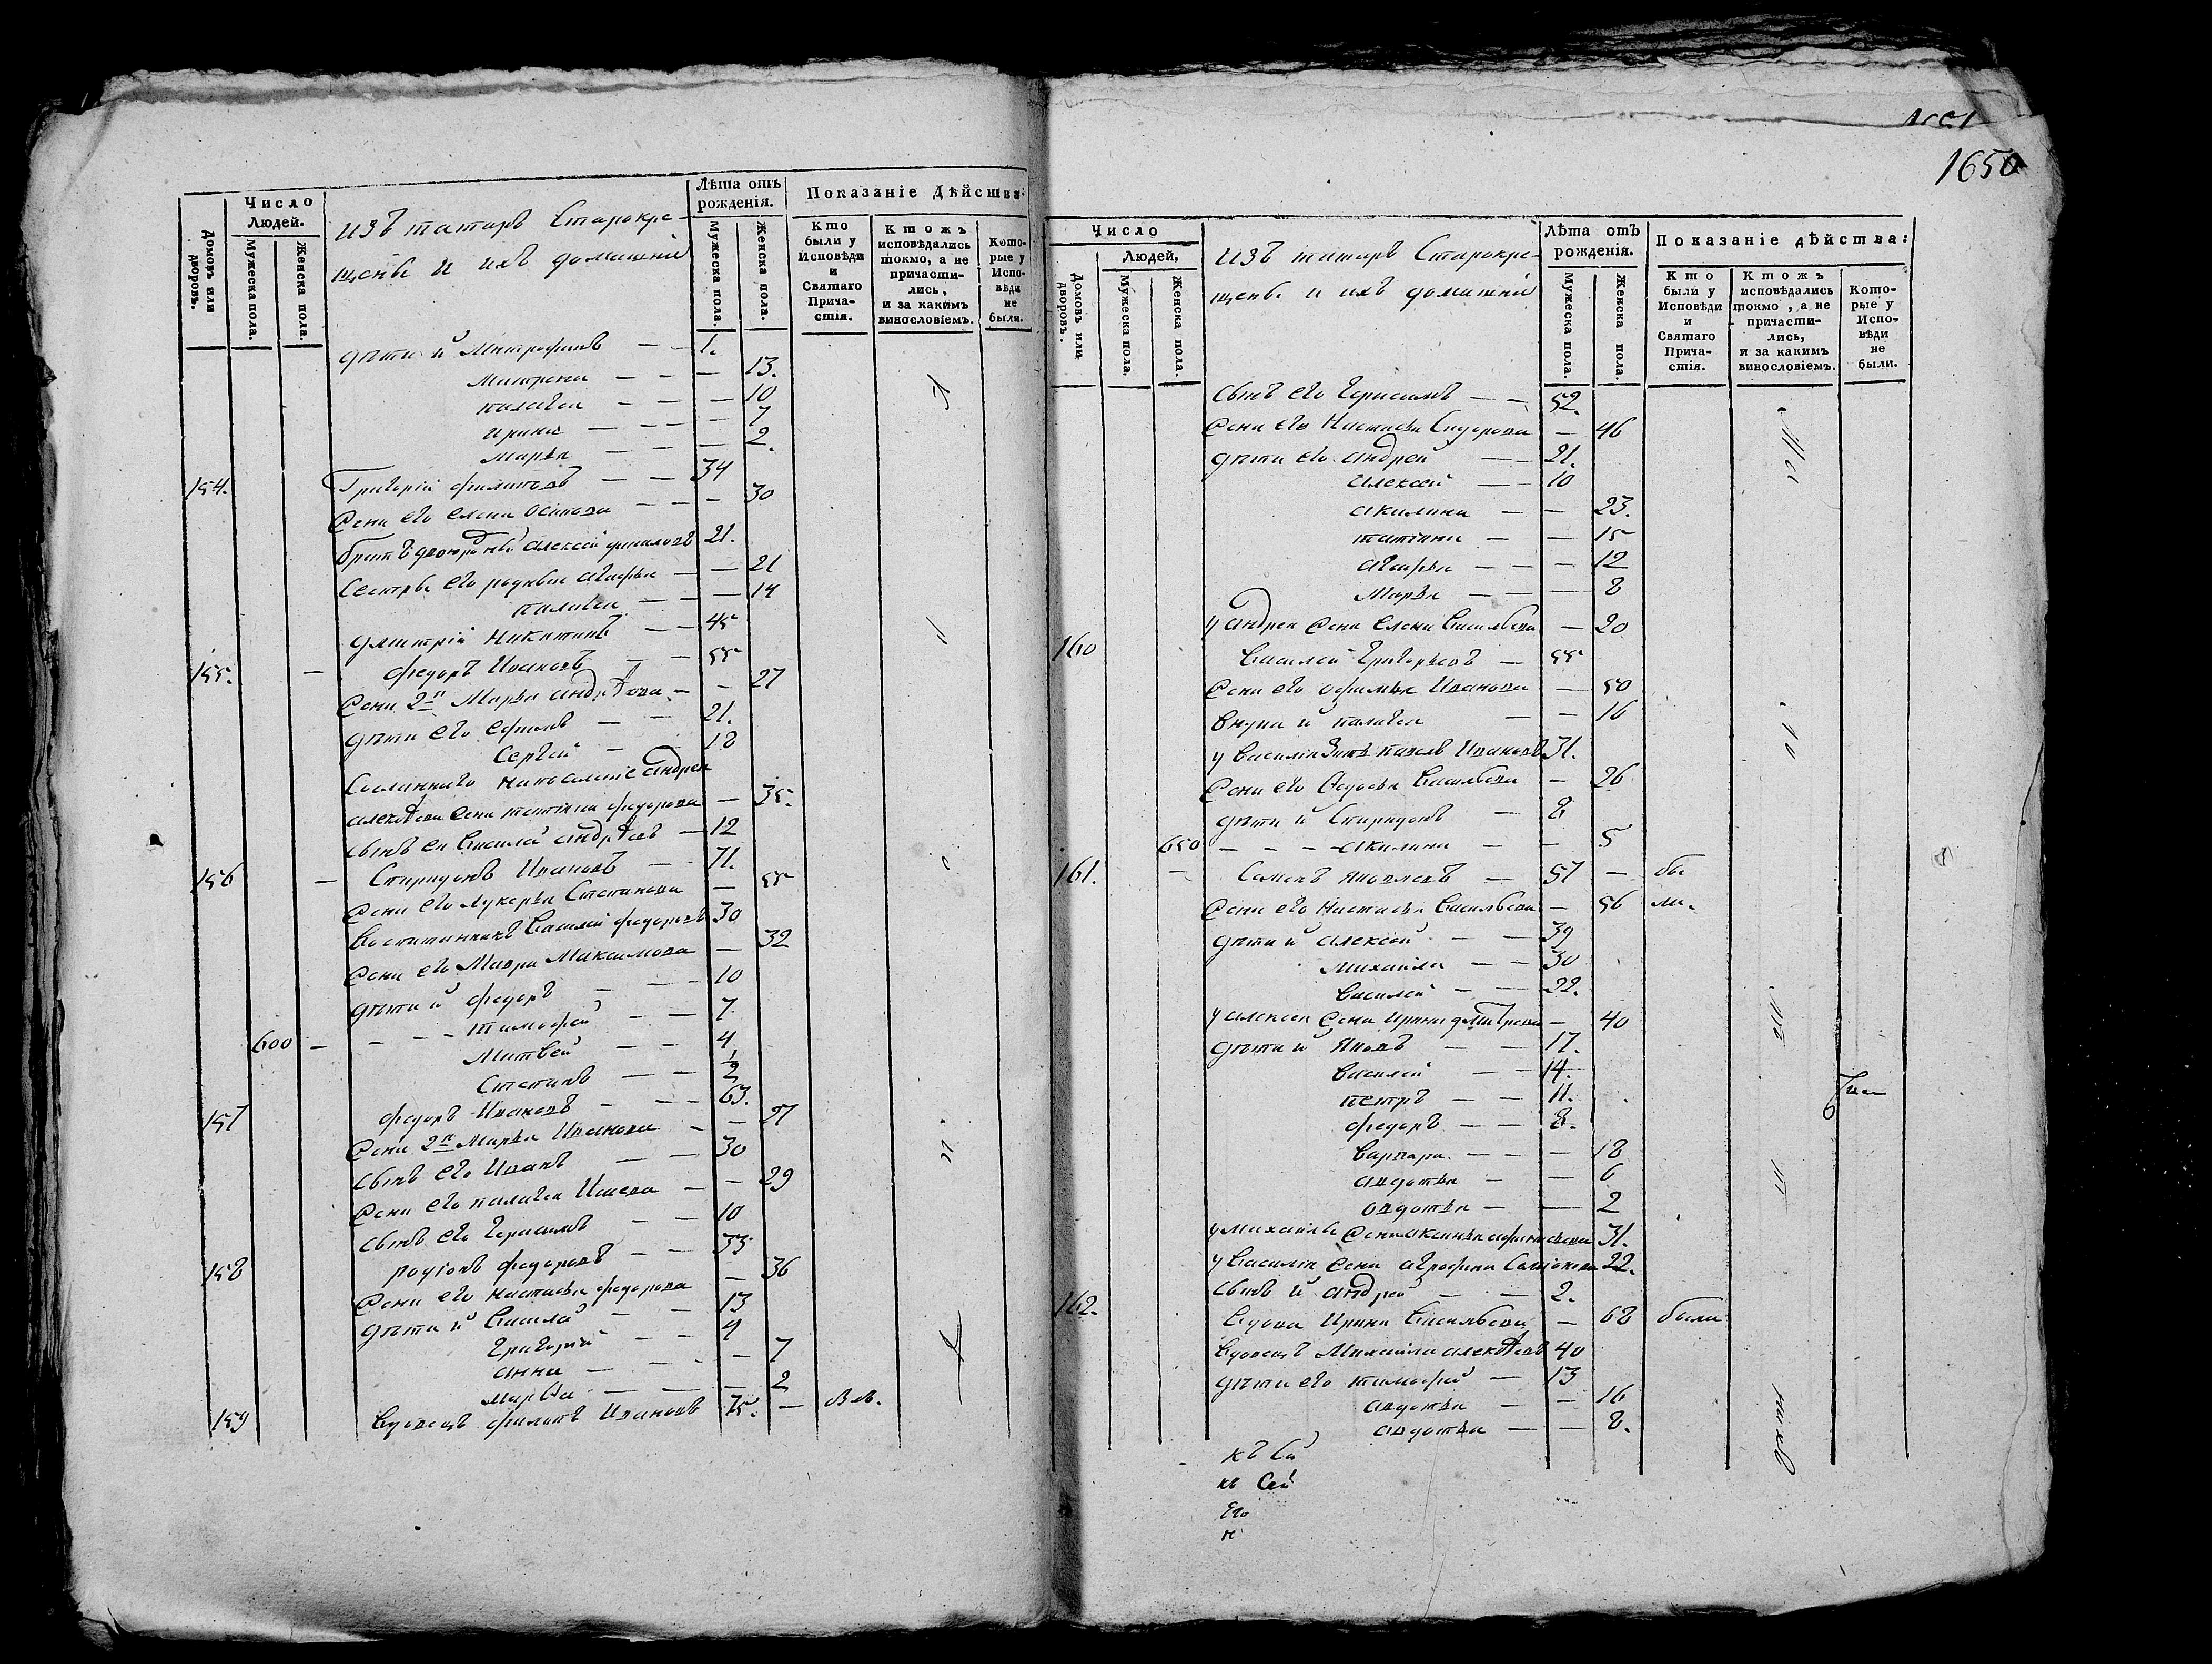 Домовъ или дворовъ.
Число Людей.
Мужеска пола.
Женска пола.
изъ татаръ Старокре-
щены и ихъ домашнии
Лѣта отъ рожденія.
Мужеска пола.
Женска пола.
Показаніе Дѣйства:
Кто были у Исповѣди и Святаго Прича- стія.
Ктожъ исповѣдались токмо, а не причасти- лись, и за какимъ винословіемъ.
Кото- рые у Испо- вѣди не были.
дѣти и Митрофанъ — — 7.
Матрена — — — 13.
палагея — — — 10
ирина — — — 7
марѳа — — — 2.
154. Григорій филиповъ — — 34
Жена его елена осипова — — — 30
братъ двоюродный алексей филиповъ 21.
Сестры его родныя агафья — — 21
палагея — — — 14
дмитрій никитинъ — — 45
155. — федоръ Ивановъ — — 55
Жена 2я Марья андрѣева — — 27
дѣти его ефимъ — — 21.
Сергей — — 18
Сосланнаго на поселение андрея
алексѣева жена татіяна федорова — 35.
сынъ ея Василей андрѣевъ — 12
156 — Спиридонъ Ивановъ — 71.
Жена его лукерья Степанова — 55
Воспитанникъ Василей федоровъ 30
Жена его Мавра Максимова — 32
дѣти и федоръ — — 10
600 — — — — тимофей — — 7.
Матвей — — 4
Степанъ — — 1/2
157 федоръ Ивановъ — — 63.
Жена 2я Марья Иванова — — 27
сынъ его Иванъ — — 30
Жена его палагея Исаева — — 29
сынъ его Герасимъ — — 10
158 родіонъ федоровъ — — 33
Жена его настасья федорова — 36
дѣти и Василей — — 13
Григорій — — 4
анна — — — 7
марѳа — — — 2
159 Вдовецъ филипъ Ивановъ 75. —
1650
Домовъ или дворовъ.
Число Людей.
Мужеска пола.
Женска пола.
изъ татаръ Старокре-
щены и ихъ домашнии
Лѣта отъ рожденія.
Мужеска пола.
Женска пола.
Показаніе дѣйства:
Кто были у Исповѣди и Святаго Прича- стія.
Ктожъ исповѣдались токмо, а не причасти- лись, и за какимъ винословіемъ.
Кото- рые у Испо- вѣди не были.
сынъ его Герасимъ — — 52.
Жена его Настасья Сидорова — 46
дѣти его андрей — — 21.
алексей — — 10
акилина — — 23.
татіяна — — 15
агафья — — — 12
Марья — — — 8
у андрея жена Елена Васильева — 20
160 Василей Григорьевъ — 55
Жена его афимья Иванова — 50
внука и палагея — — 16
у Василья зять павелъ Ивановъ 31.
Жена его Федосья Васильева — 26
дѣти и Спиридонъ — 8
650 — — — акилина — — 5
161. — Семенъ Яковлевъ — 57 — бы
Жена его Настасья Васильева — 56 ли.
дѣти и алексей — — 39
михаила — — 30
василей — — 22.
у алексея жена Ирина дмитрева — 40
дѣти и Яковъ — — 17.
василей — — 14.
петръ — — 11.
федоръ — — 8.
варвара — — — 18
авдотья — — 6
авдотья — — 2
у михаилы жена аксинья афанасьева 31.
у Василія жена аграфена Семіонова 22.
сынъ и андрей — — 2.
162. Вдова Ирина Васильева — 68 были
Вдовецъ Михаила алексѣевъ 40
дѣти его тимофей — 13
авдотья — — 16
авдотья — — 8.
къ Сей
Его